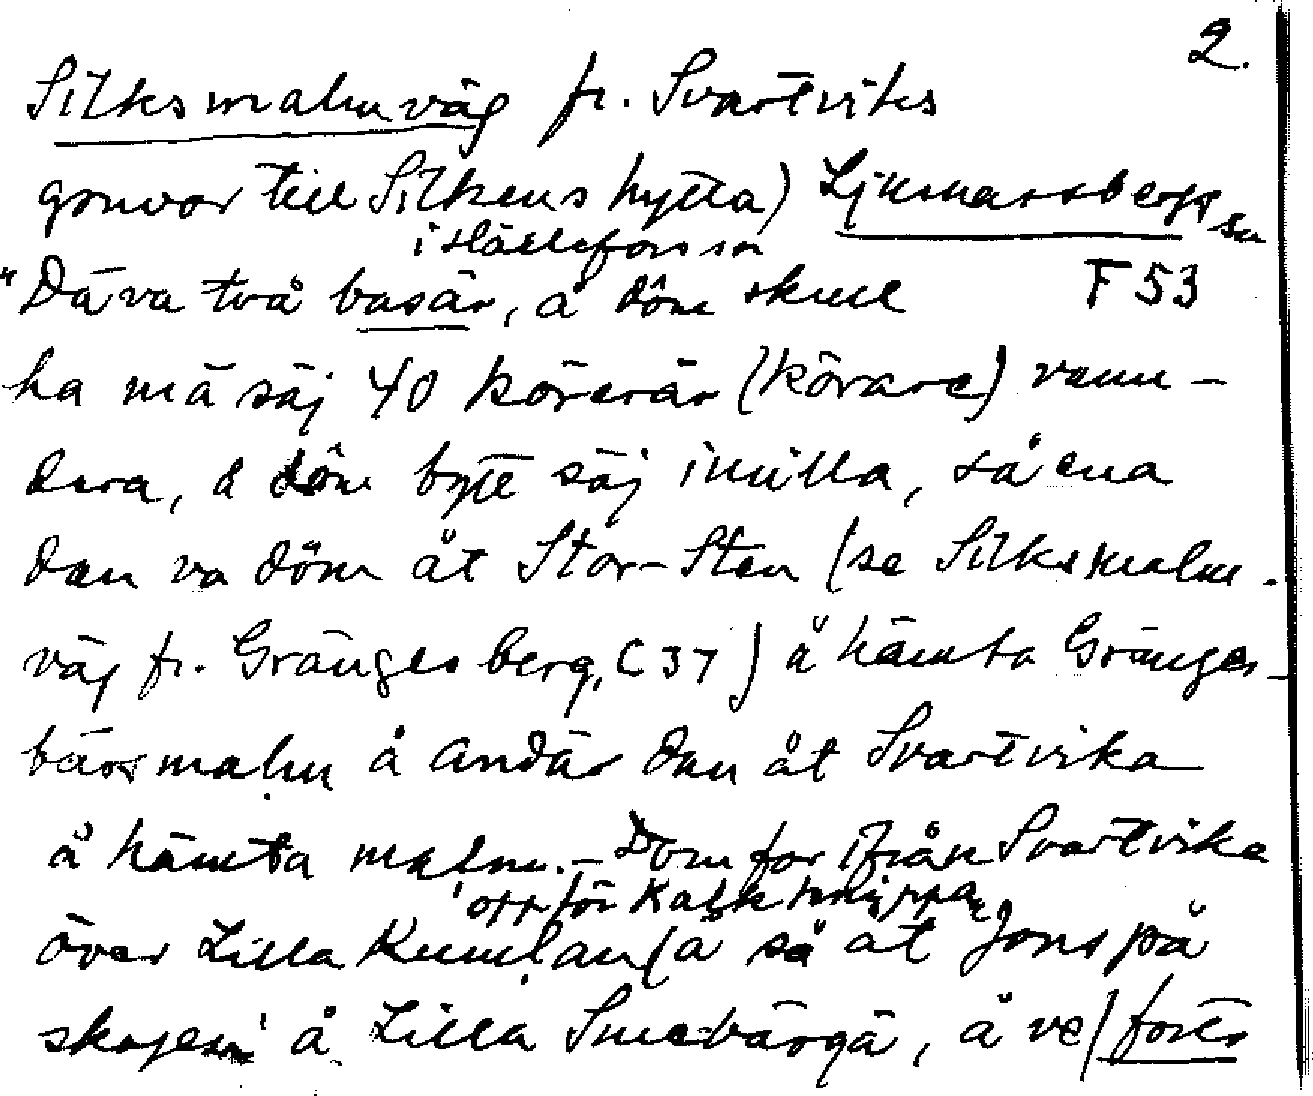 2.
Silksmalmväg fr. Svartviks
gruvor till Silkens hytta) Ljusnarsbergs sn
i Hällefors sn
"Dä va två basär, å döm skulle F 53
ha mä säj 40 körerär (körare) varan-
dera, å döm bytte säj imilla, så ena
dan va döm åt Stor-Sten (se Silksmalm-
väg fr. Grängesberg, C 37) å hämta Gränges-
bärsmalm å andär dan åt Svartvika
å hämta malm. - Dom for ifrån Svartvika
oppför Kalkknippa
över Lilla Kumlan (å så åt Jons på
skogen' å Lilla Smebärgä, å ve/ forès